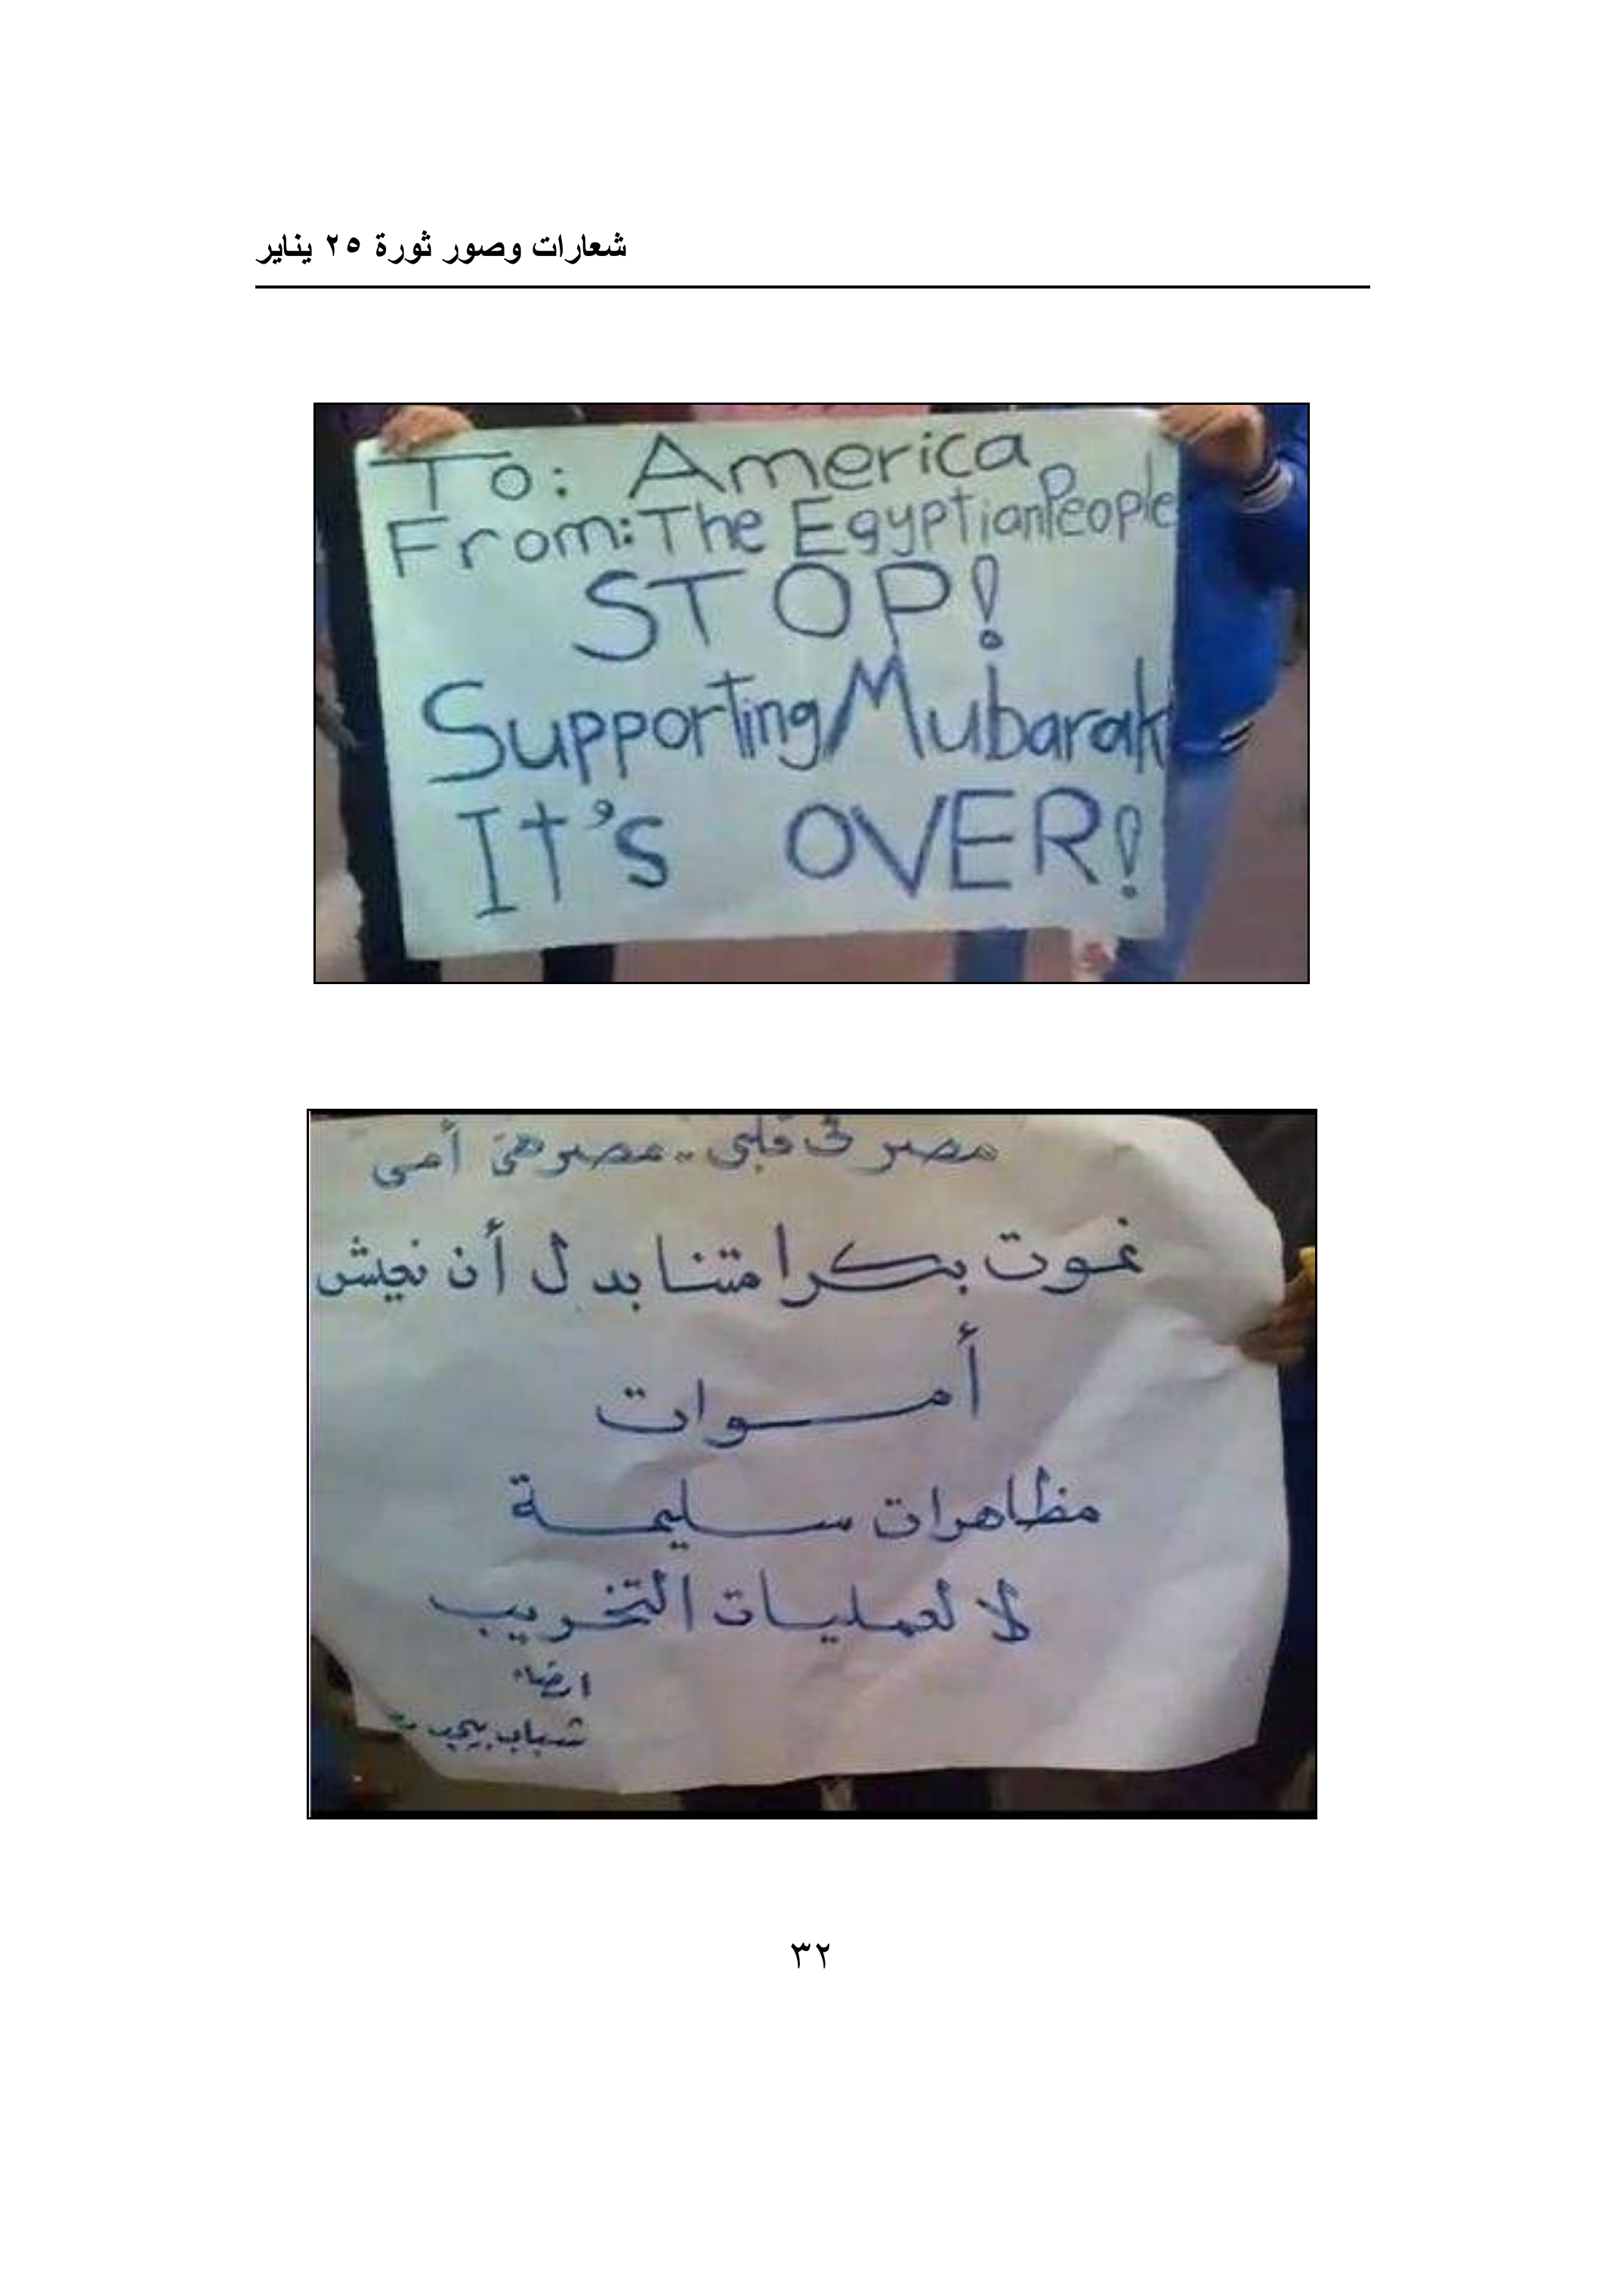 شعارات وصور ثورة ٢٥ يناير
To: America
From: The Egyptian People
STOP!
Supporting Mubarak
It's OVER!
مصر فى قلبى .. مصر هى أمى
نموت بكرامتنا بدل أن نعيش
أموات
مظاهرات سليمة
لا لعمليات التخريب
امضاء
شباب بيحب
٣٢